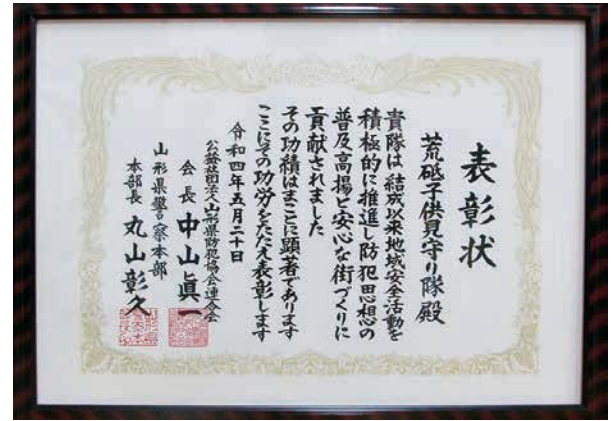 表彰状
荒砥子供見守り隊殿
貴隊は結成以来地域安全活動を
積極的に推進し防犯思想の
普及高揚と安心な街づくりに
貢献されました
その功績はまことに顕著であります
ここにその功労をたたえ表彰します
令和四年五月二十日
公益社団法人山形県防犯協会連合会
会長 中山眞一
山形県警察本部
本部長 丸山彰久